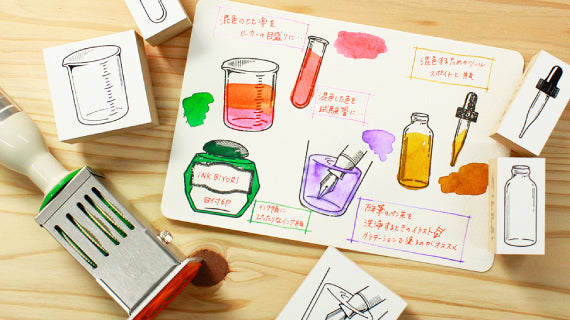 混色の比率を
ビーカーの目盛りに…
混色するためのツール
スポイトと瓶
混色した色を
試験管に
INK BIYORI
インク瓶に
ぴったりなインク和紙
万年筆のペン先を
洗浄するときのイラスト
グラデーションで塗るのがオススメ